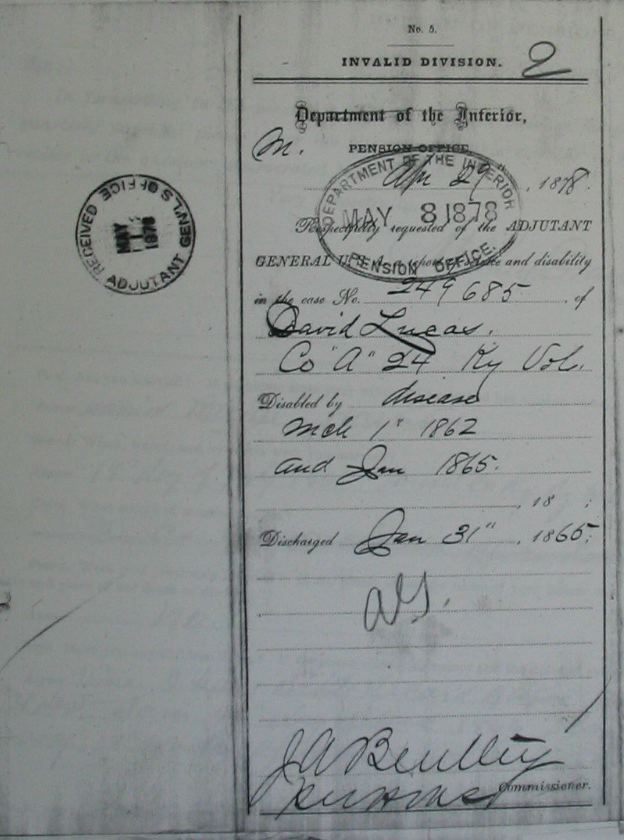 No. 5.
INVALID DIVISION. 2
Department of the Interior,
M. PENSION OFFICE,
Apr 29, 1878.
Respectfully requested of the ADJUTANT
GENERAL U.S.A. a report of service and disability
in the case No. 249685 of
David Lucas.
Co "A" 24 Ky Vol.
Disabled by disease
Mch 1" 1862
and Jan 1865.
, 18 ;
Discharged Jan 31", 1865;
J A Bentley
Commissioner.
DEPARTMENT OF THE INTERIOR
MAY 8 1878
PENSION OFFICE.
RECEIVED
MAY 1 1878
ADJUTANT GEN'L'S OFFICE